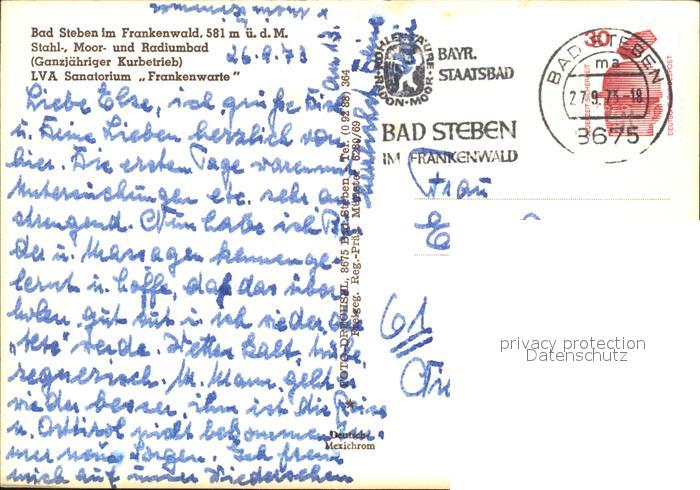 Bad Steben im Frankenwald, 581 m ü. d. M.
Stahl-, Moor- und Radiumbad
(Ganzjähriger Kurbetrieb)
LVA Sanatorium „Frankenwarte"
26.9.73
Liebe Else, ich grüße Dich
u. Deine Lieben herzlich von
hier. Die ersten Tage waren m.
Untersuchungen etc. sehr an
strengend. Nun habe ich Bä
der u. Massagen kennenge-
lernt u. hoffe, daß das über
holen gut tut u. ich wieder
werde. Wetter kalt,
regnerisch. M. Mann geht es
wieder besser, ihm ist die Reise
n. Osttirol nicht bekommen. Im
mer neue Sorgen. Ich freue
mich auf unser Wiedersehen
FOTO-DRECHSEL, 8675 Bad Steben - Tel. (0 92 88) 364
Freigeg. Reg.-Präs. Münster 6280/69
Deutsche
Mexichrom
KOHLENSÄURE
RADON-MOOR
BAYR.
STAATSBAD
BAD STEBEN
IM FRANKENWALD
30
BAD STEBEN
ma
27.9.73-18
8675
Frau
61
privacy protection
Datenschutz